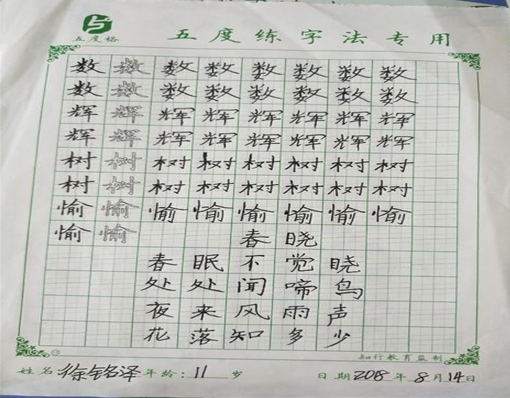 五度格 五度练字法专用
数数数数数数数数
数数数数数数数数
辉辉辉辉辉辉辉辉
辉辉辉辉辉辉辉辉
树树树树树树树树
树树树树树树树树
愉愉愉愉愉愉愉愉
愉愉 春晓
春眠不觉晓
处处闻啼鸟
夜来风雨声
花落知多少
知行教育监制
姓名徐铭泽年龄:11岁 日期2018年8月14日